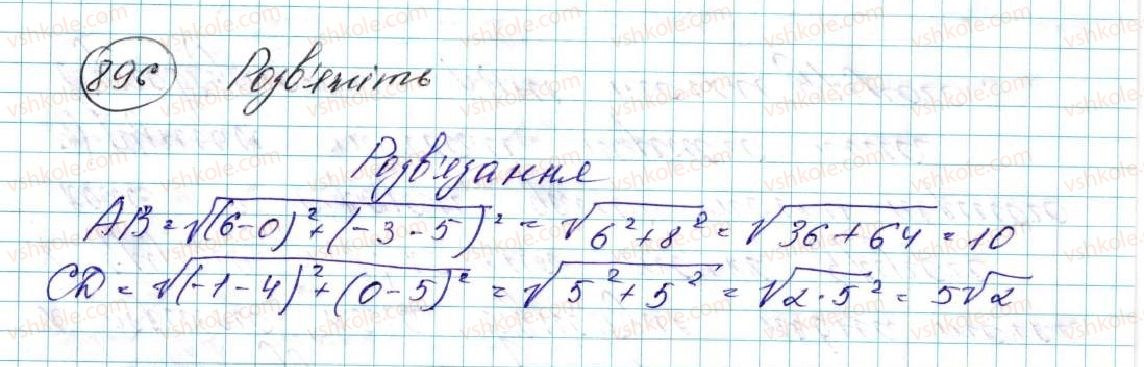 896 Розв'яжіть
Розв'язання
AB = √((6-0)² + (-3-5)²) = √(6²+8²) = √(36+64) = 10
CD = √((-1-4)² + (0-5)²) = √(5²+5²) = √(2·5²) = 5√2